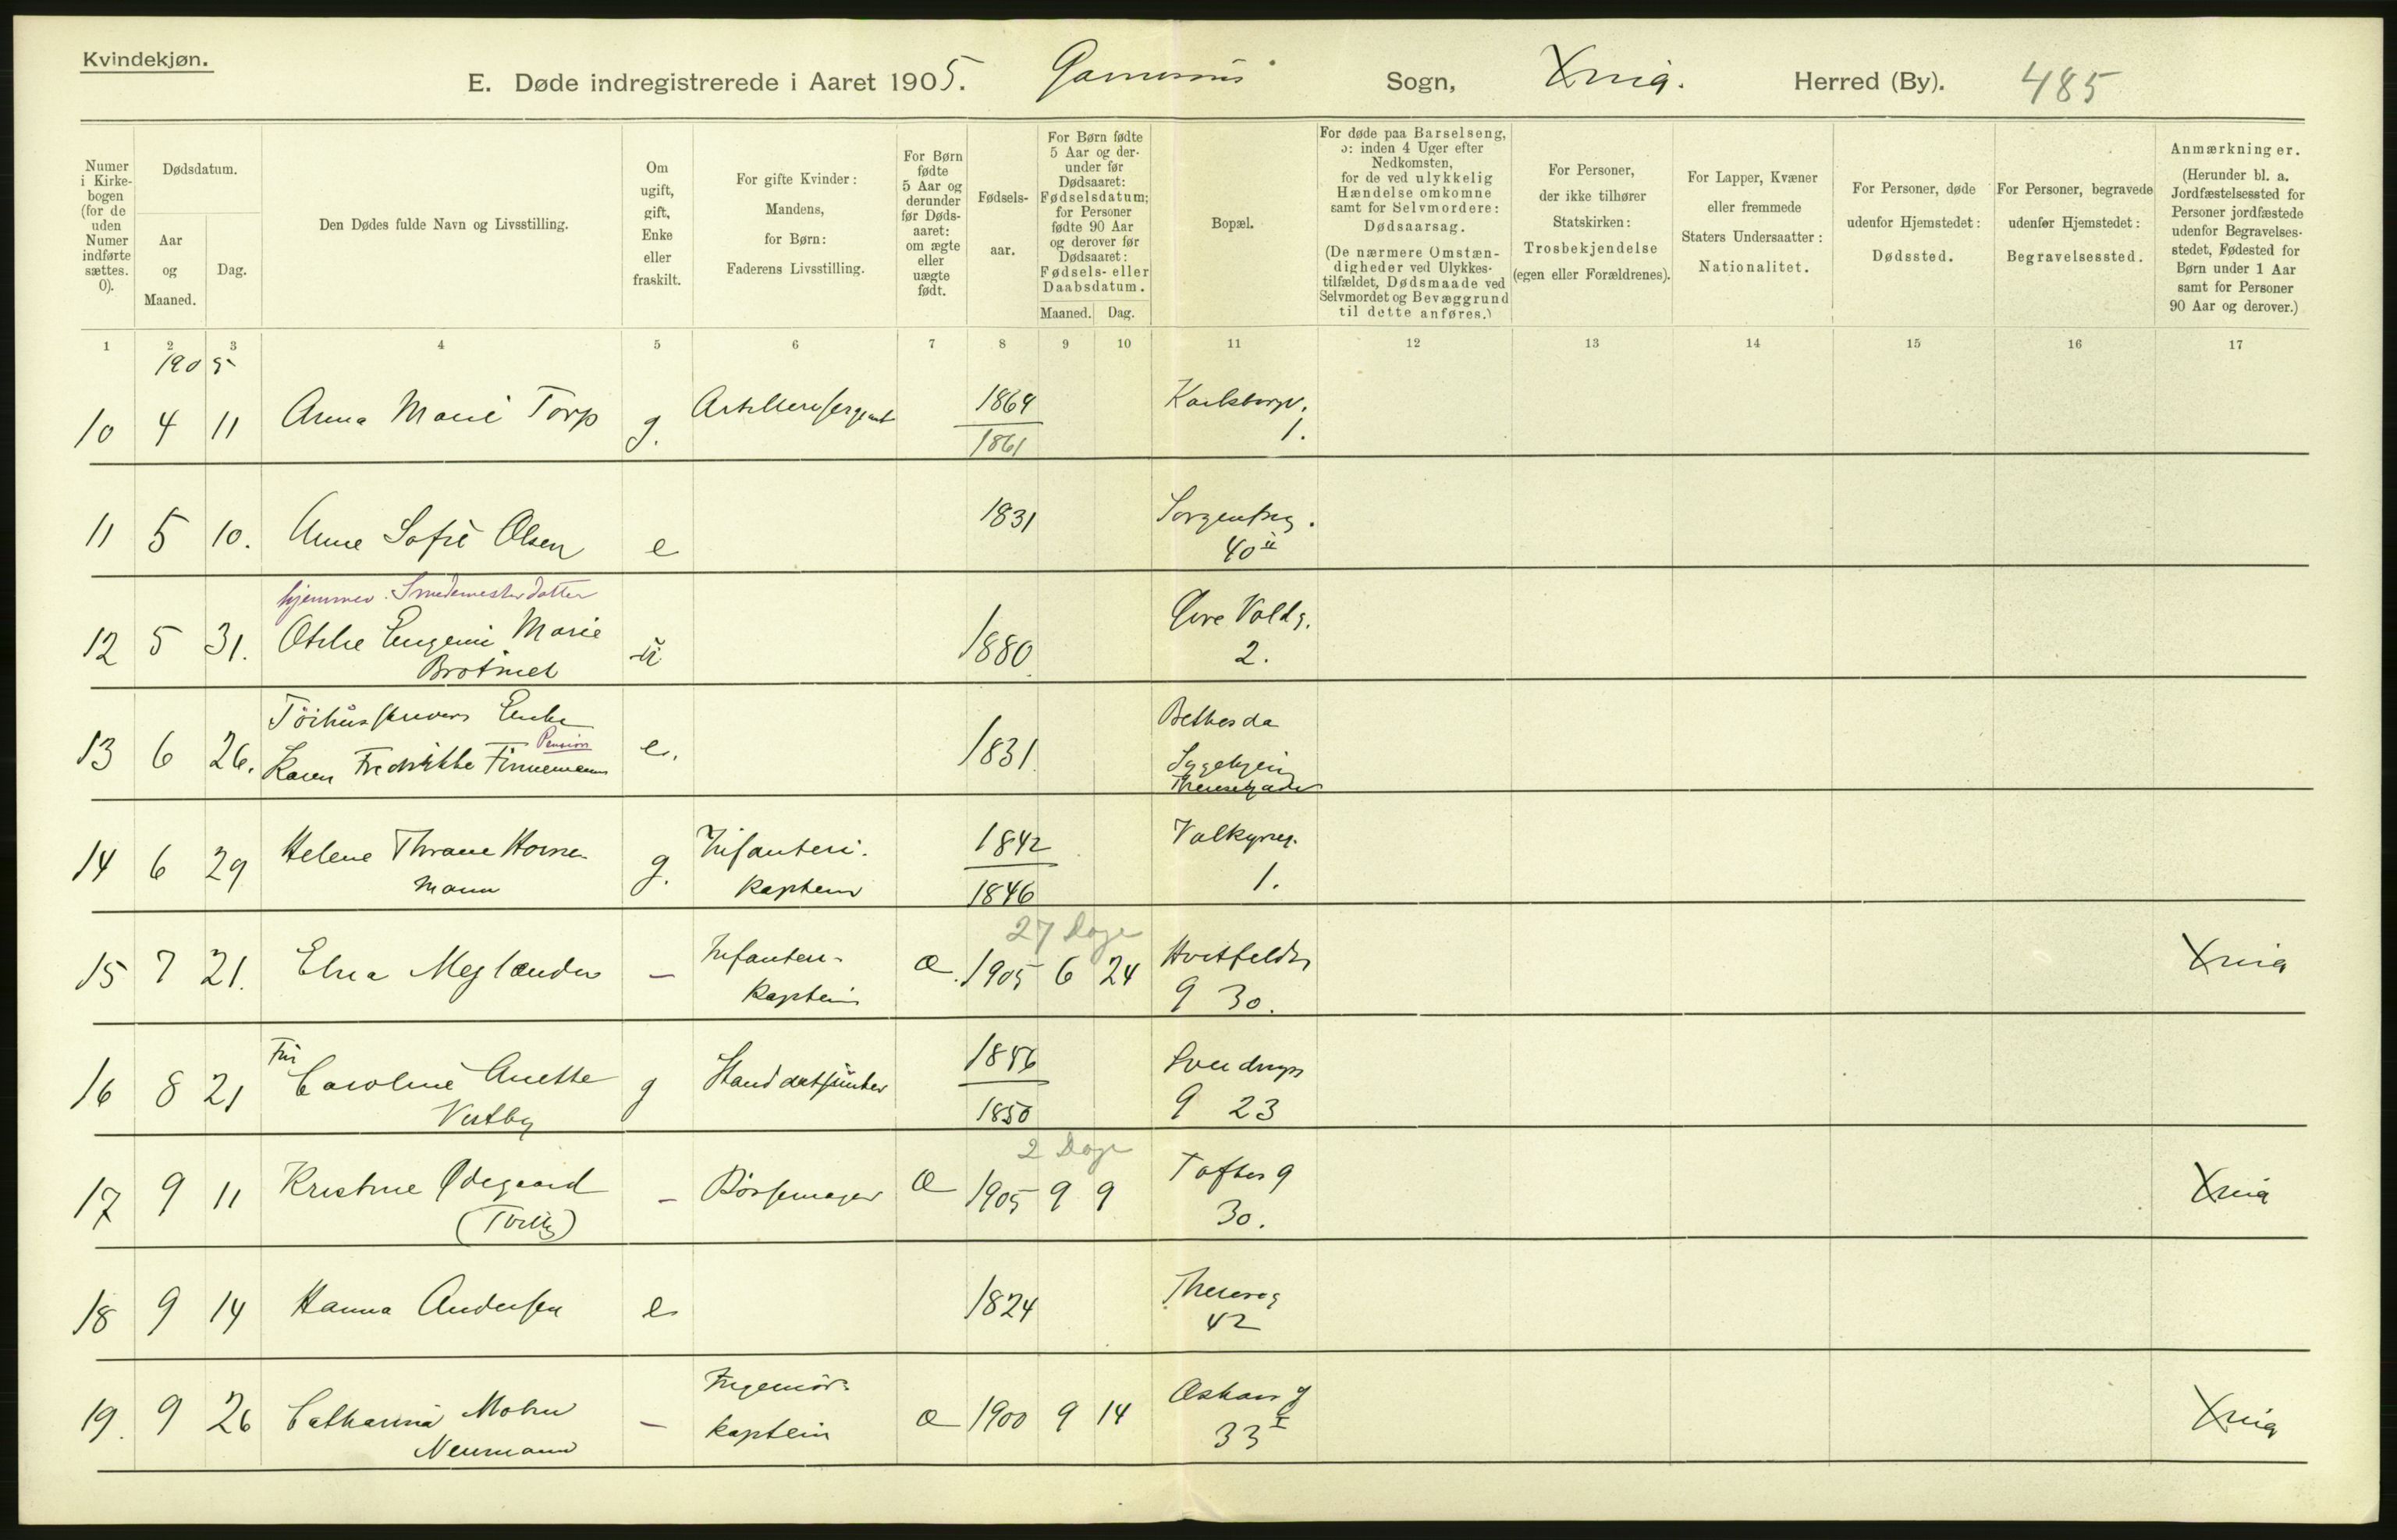 Kvindekjøn.
E. Døde indregistrerede i Aaret 1905. Sogn, Xnia. Herred (By). 485
Numer i Kirkebogen (for de uden Numer indførte sættes. 0).
Dødsdatum.
Aar og Maaned.
Dag.
Den Dødes fulde Navn og Livsstilling.
Om ugift, gift, Enke eller fraskilt.
For gifte Kvinder: Mandens, for Børn: Faderens Livsstilling.
For Børn fødte 5 Aar og derunder før Dødsaaret: om ægte eller uægte født.
Fødselsaar.
For Børn fødte 5 Aar og derunder før Dødsaaret: Fødselsdatum; for Personer fødte 90 Aar og derover før Dødsaaret: Fødsels- eller Daabsdatum.
Maaned. Dag.
Bopæl.
For døde paa Barselseng, ɔ: inden 4 Uger efter Nedkomsten, for de ved ulykkelig Hændelse omkomne samt for Selvmordere: Dødsaarsag.
(De nærmere Omstændigheder ved Ulykkestilfældet, Dødsmaade ved Selvmordet og Bevæggrund til dette anføres.)
For Personer, der ikke tilhører Statskirken: Trosbekjendelse (egen eller Forældrenes).
For Lapper, Kvæner eller fremmede Staters Undersaatter: Nationalitet.
For Personer, døde udenfor Hjemstedet: Dødssted.
For Personer, begravede udenfor Hjemstedet: Begravelsessted.
Anmærkninger.
(Herunder bl. a. Jordfæstelsessted for Personer jordfæstede udenfor Begravelsesstedet, Fødested for Børn under 1 Aar samt for Personer 90 Aar og derover.)
1 2 3 4 5 6 7 8 9 10 11 12 13 14 15 16 17
1905
10 4 11 Anna Marie Torp g. Artillerisergeant 1864
1861
1.
11 5 10. Anne Sofie Olsen e 1831 Sorgenfrig.
40 II
hjemmev. Smedemesterdatter
12 5 31. Otilie Eugenie Marie u 1880 Øvre Voldg.
2.
Tøihusskrivers Enke
Pension
13 6 26. Karen Fredrikke Finnemann e. 1831 Bethesda
Sygehjem
14 6 29 Helene Thrane Horne- g. Infanteri- 1842 Valkyrieg.
mann kaptein 1846 1.
27 Dage
15 7 21. Elna Meglænder — Infanteri- æ. 1905 6 24 Hvitfeldts Xnia
kaptein g 30.
Fru
16 8 21 Caroline Anette g 1846 Sverdrups
Vestby 1850 g 23
2 Dage
17 9 11 Kristine Ødegaard — Børsemager æ 1905 9 9 Toftes g Xnia
30.
18 9 14 Hanna Andersen e 1824 Thereseg
42
19. 9 26 Catharina Mohn — Ingeniør- æ 1900 9 14 Oskars g Xnia
Neumann kaptein 33 I